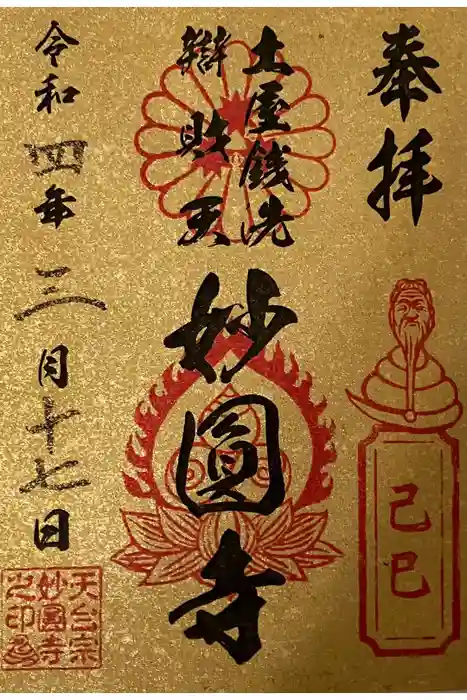 奉拝
己巳
土屋銭洗
辯財天
妙圓寺
令和四年三月十七日
天台宗
妙圓寺
之印